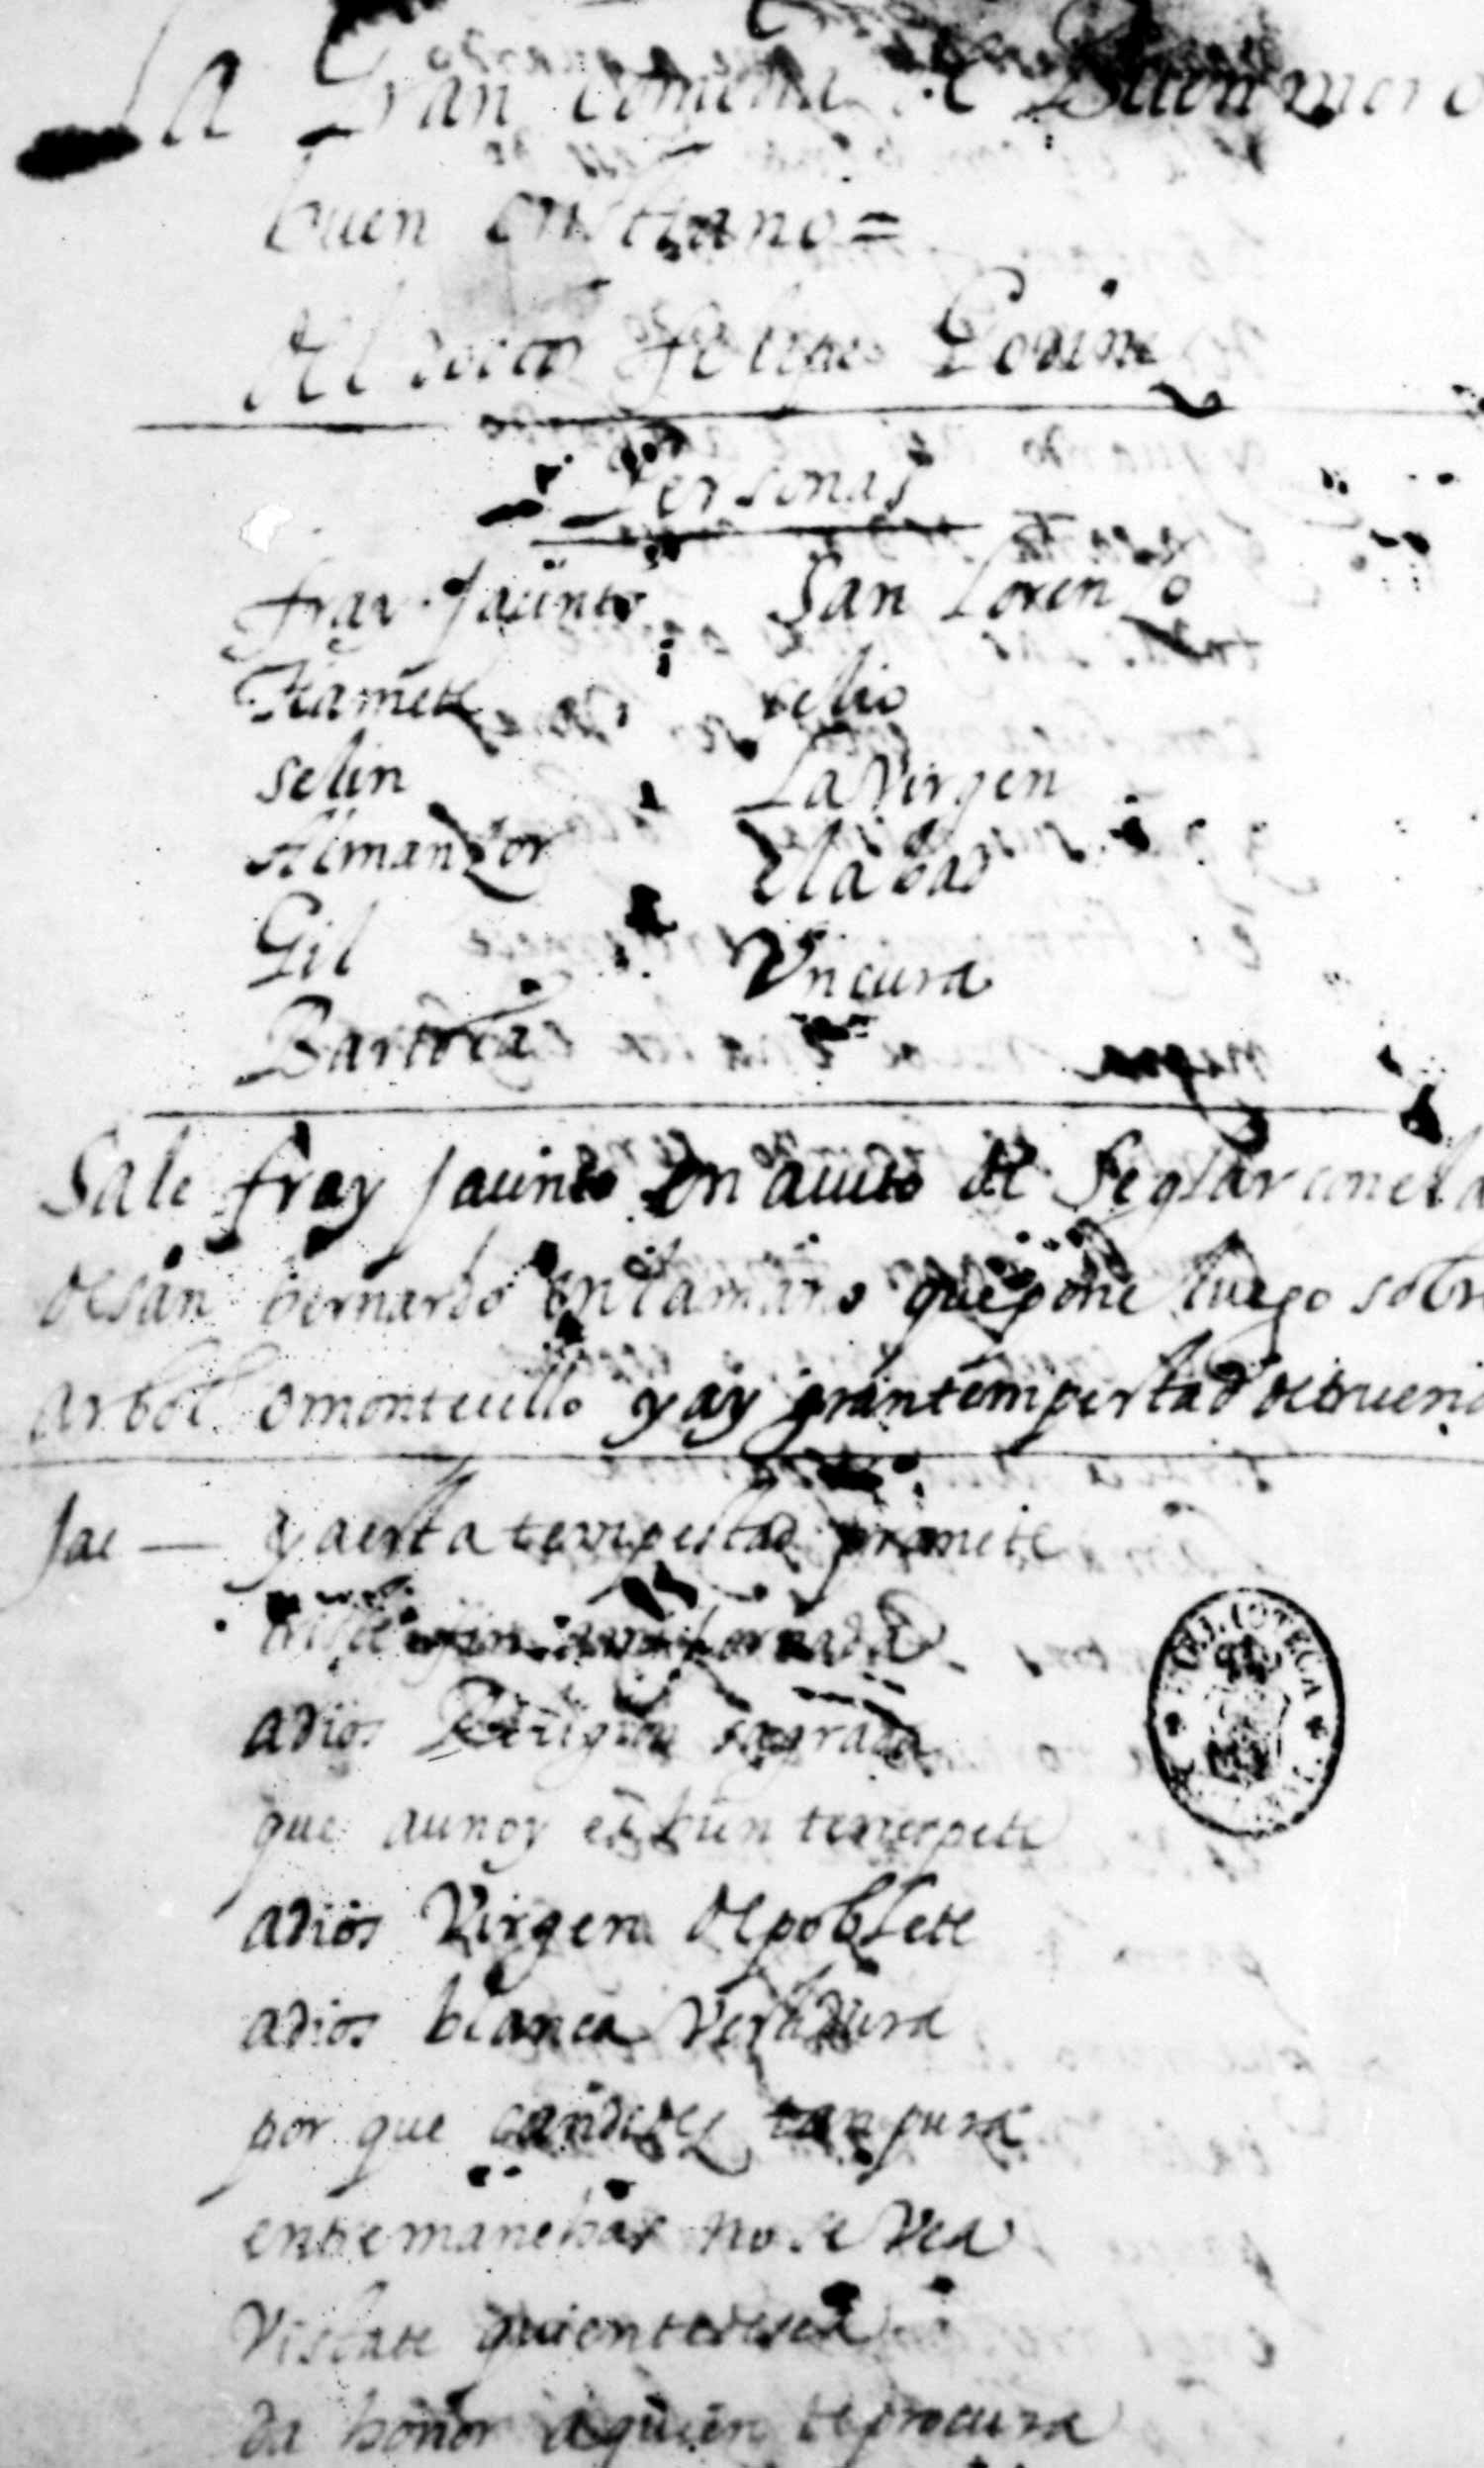 La Gran comedia de Buen moro
buen cristiano =
del doctor felipe Godine
Personas
fray Jacinto San Lorenzo
Hamete celio
selin La Virgen
Almanzor el abad
Gil Un cura
Bartola
Sale fray Jacinto en auito de seglar con el
de san bernardo en la mano que pone luego sobr
arbol o montecillo y ay gran tempestad de trueno
Jac — ya esta tempestad promete
jornada
adios Religion sagrada
que aun oy es bien te respete
adios Virgen de poblete
adios blanca Verdura
por que candidez tan pura
entre manchas no se Vea
Vistate quien te desea
da honor a quien te procura
BIBLIOTECA